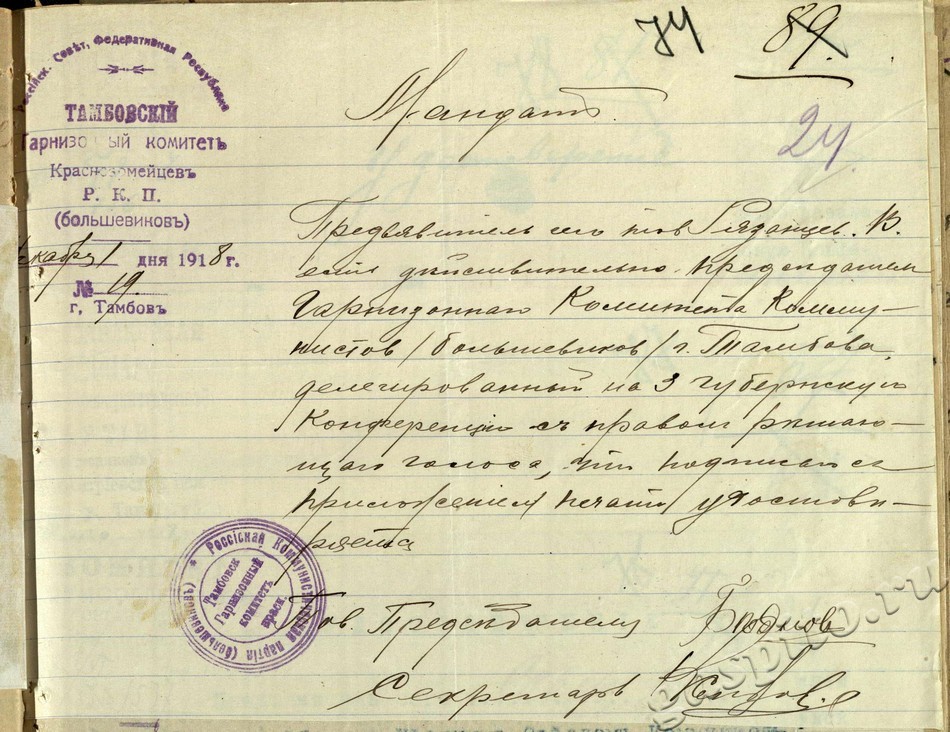 74 89
24
Россійск. Совѣт. Федеративная Республика
ТАМБОВСКІЙ
Гарнизонный комитетъ
Красноармейцевъ
Р. К. П.
(большевиковъ)
декабря 1 дня 1918г.
№ 19.
г. Тамбовъ
Мандатъ.
Предъявитель сего тов Рязанцев. В.
есть дѣйствительно предсѣдатель
Гарнизоннаго Комитета Комму-
нистов /большевиков/ г. Тамбова,
делегированный на 3 губернскую
Конференцію съ правом рѣшаю-
щаго голоса, что подписью и с
приложением печати удостовѣ-
ряется
Россіская Коммунистическая партія (большевиковъ)
Тамбовск
Гарнизонный
комитетъ
красн.
Тов. Предсѣдателя
Секретарь